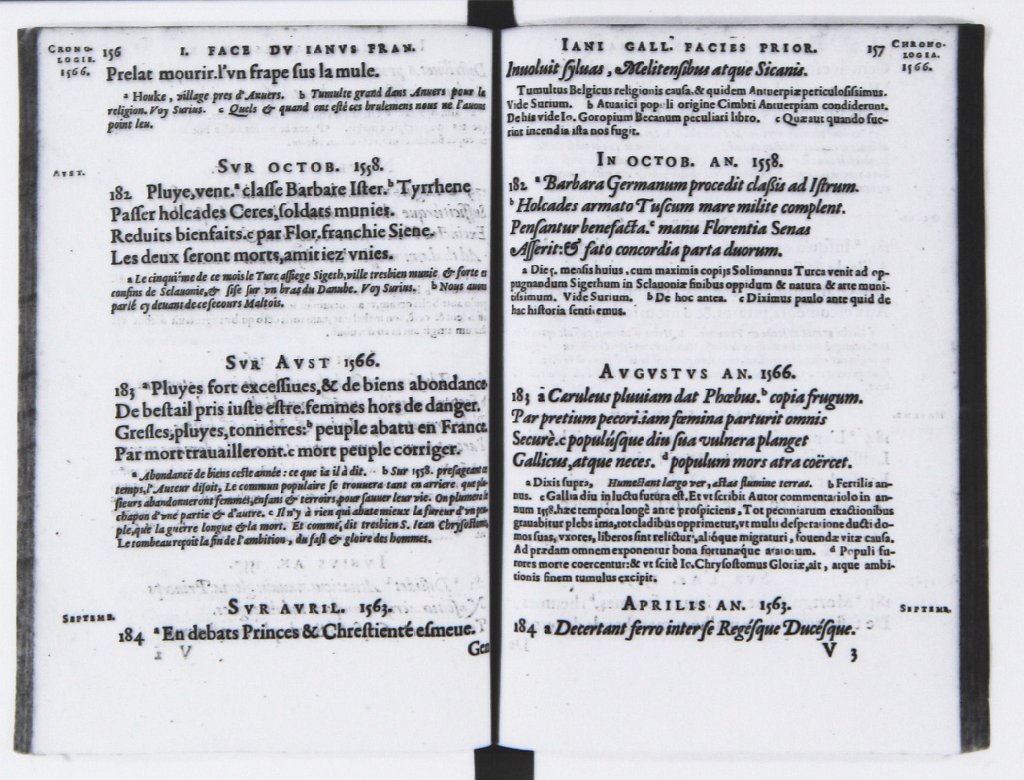 CRONO-
LOGIE.
1566.
156
I. FACE DV IANVS FRAN.
Prelat mourir. l'vn frape sus la mule.
a Houke, village pres d'Anuers. b Tumulte grand dans Anuers pour la
religion. Voy Surius. c Quels & quand ont esté ces brulemens nous ne l'auons
point leu.
SVR OCTOB. 1558.
AVST.
182 Pluye, vent. ª classe Barbare Ister. ᵇ Tyrrhene
Passer holcades Ceres, soldats munies.
Reduits bienfaits. c par Flor. franchie Siene.
Les deux seront morts, amitiez vnies.
a Le cinquiéme de ce mois le Turc assiege Sigeth, ville tresbien munie & forte es
confins de Sclauonie, & sise sur vn bras du Danube. Voy Surius. b Nous auons
parlé cy deuant de ce secours Maltois.
SVR AVST 1566.
183 ª Pluyes fort excessiues, & de biens abondance
De bestail pris iuste estre. femmes hors de danger.
Gresles, pluyes, tonnerres: ᵇ peuple abatu en France.
Par mort trauailleront. c mort peuple corriger.
a Abondance de biens ceste année: ce que ia il à dit. b Sur 1558. presageant
temps, l'Auteur disoit, Le commun populaire se trouuera tant en arriere que plu-
sieurs abandonneront femmes, enfans & terroirs, pour sauuer leur vie. On plumera le
chapon d'vne partie & d'autre. c Il n'y à rien qui abate mieux la fureur d'vn peu-
ple, que la guerre longue & la mort. Et comme dit tresbien S. Iean Chrysostome,
Le tombeau reçoit la fin de l'ambition, du fast & gloire des hommes.
SVR AVRIL. 1563.
SEPTEMB.
184 ª En debats Princes & Chrestienté esmeue.
V 2
Gen
IANI GALL. FACIES PRIOR.
157
CHRONO-
LOGIA.
1566.
Inuoluit syluas, Melitensibus atque Sicanis.
Tumultus Belgicus religionis causa. & quidem Antuerpiæ periculosissimus.
Vide Surium. b Atuatici populi origine Cimbri Antuerpiam condiderunt.
De his vide Io. Goropium Becanum peculiari libro. c Quæ aut quando fue-
rint incendia ista nos fugit.
IN OCTOB. AN. 1558.
182 ª Barbara Germanum procedit classis ad Istrum.
ᵇ Holcades armato Tuscum mare milite complent.
Pensantur benefacta. ᶜ manu Florentia Senas
Asserit: & fato concordia parta duorum.
a Die 5. mensis huius, cum maximis copijs Solimannus Turca venit ad op-
pugnandum Sigethum in Sclauoniæ finibus oppidum & natura & arte muni-
tissimum. Vide Surium. b De hoc antea. c Diximus paulo ante quid de
hac historia sentiremus.
AVGVSTVS AN. 1566.
183 a Cæruleus pluuiam dat Phœbus. ᵇ copia frugum.
Par pretium pecori. iam fœmina parturit omnis
Securè. c populúsque diu sua vulnera planget
Gallicus, atque neces. ᵈ populum mors atra coërcet.
a Dixit supra, Humectant largo ver, æstas flumine terras. b Fertilis an-
nus. c Gallia diu in luctu futura est. Et vt scribit Autor commentariolo in an-
num 1558. hæc tempora longè ante prospiciens, Tot pecuniarum exactionibus
grauabitur plebs ima, tot cladibus opprimetur, vt multi desperatione ducti do-
mos suas, vxores, liberos sint relicturi, alióque migraturi, fouendæ vitæ causa.
Ad prædam omnem exponentur bona fortunæque aratorum. d Populi fu-
rores morte coercentur: & vt scitè Io. Chrysostomus Gloriæ, ait, atque ambi-
tionis finem tumulus excipit.
APRILIS AN. 1563.
SEPTEMB.
184 a Decertant ferro inter se Regésque Ducésque.
V 3